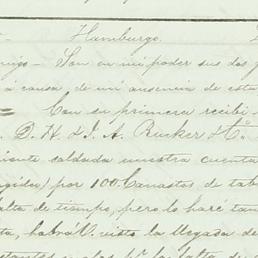 Hamburgo.
migo – Son en mi poder sus dos
á causa de mi ausencia de esta
= Con su primera recibi
D. H. & J. A. Rucker & Co.
saldada nuestra cuenta
por 100 Canastos de tab
alta de tiempo, pero lo haré tan
ta, habrá V. visto la llegada de